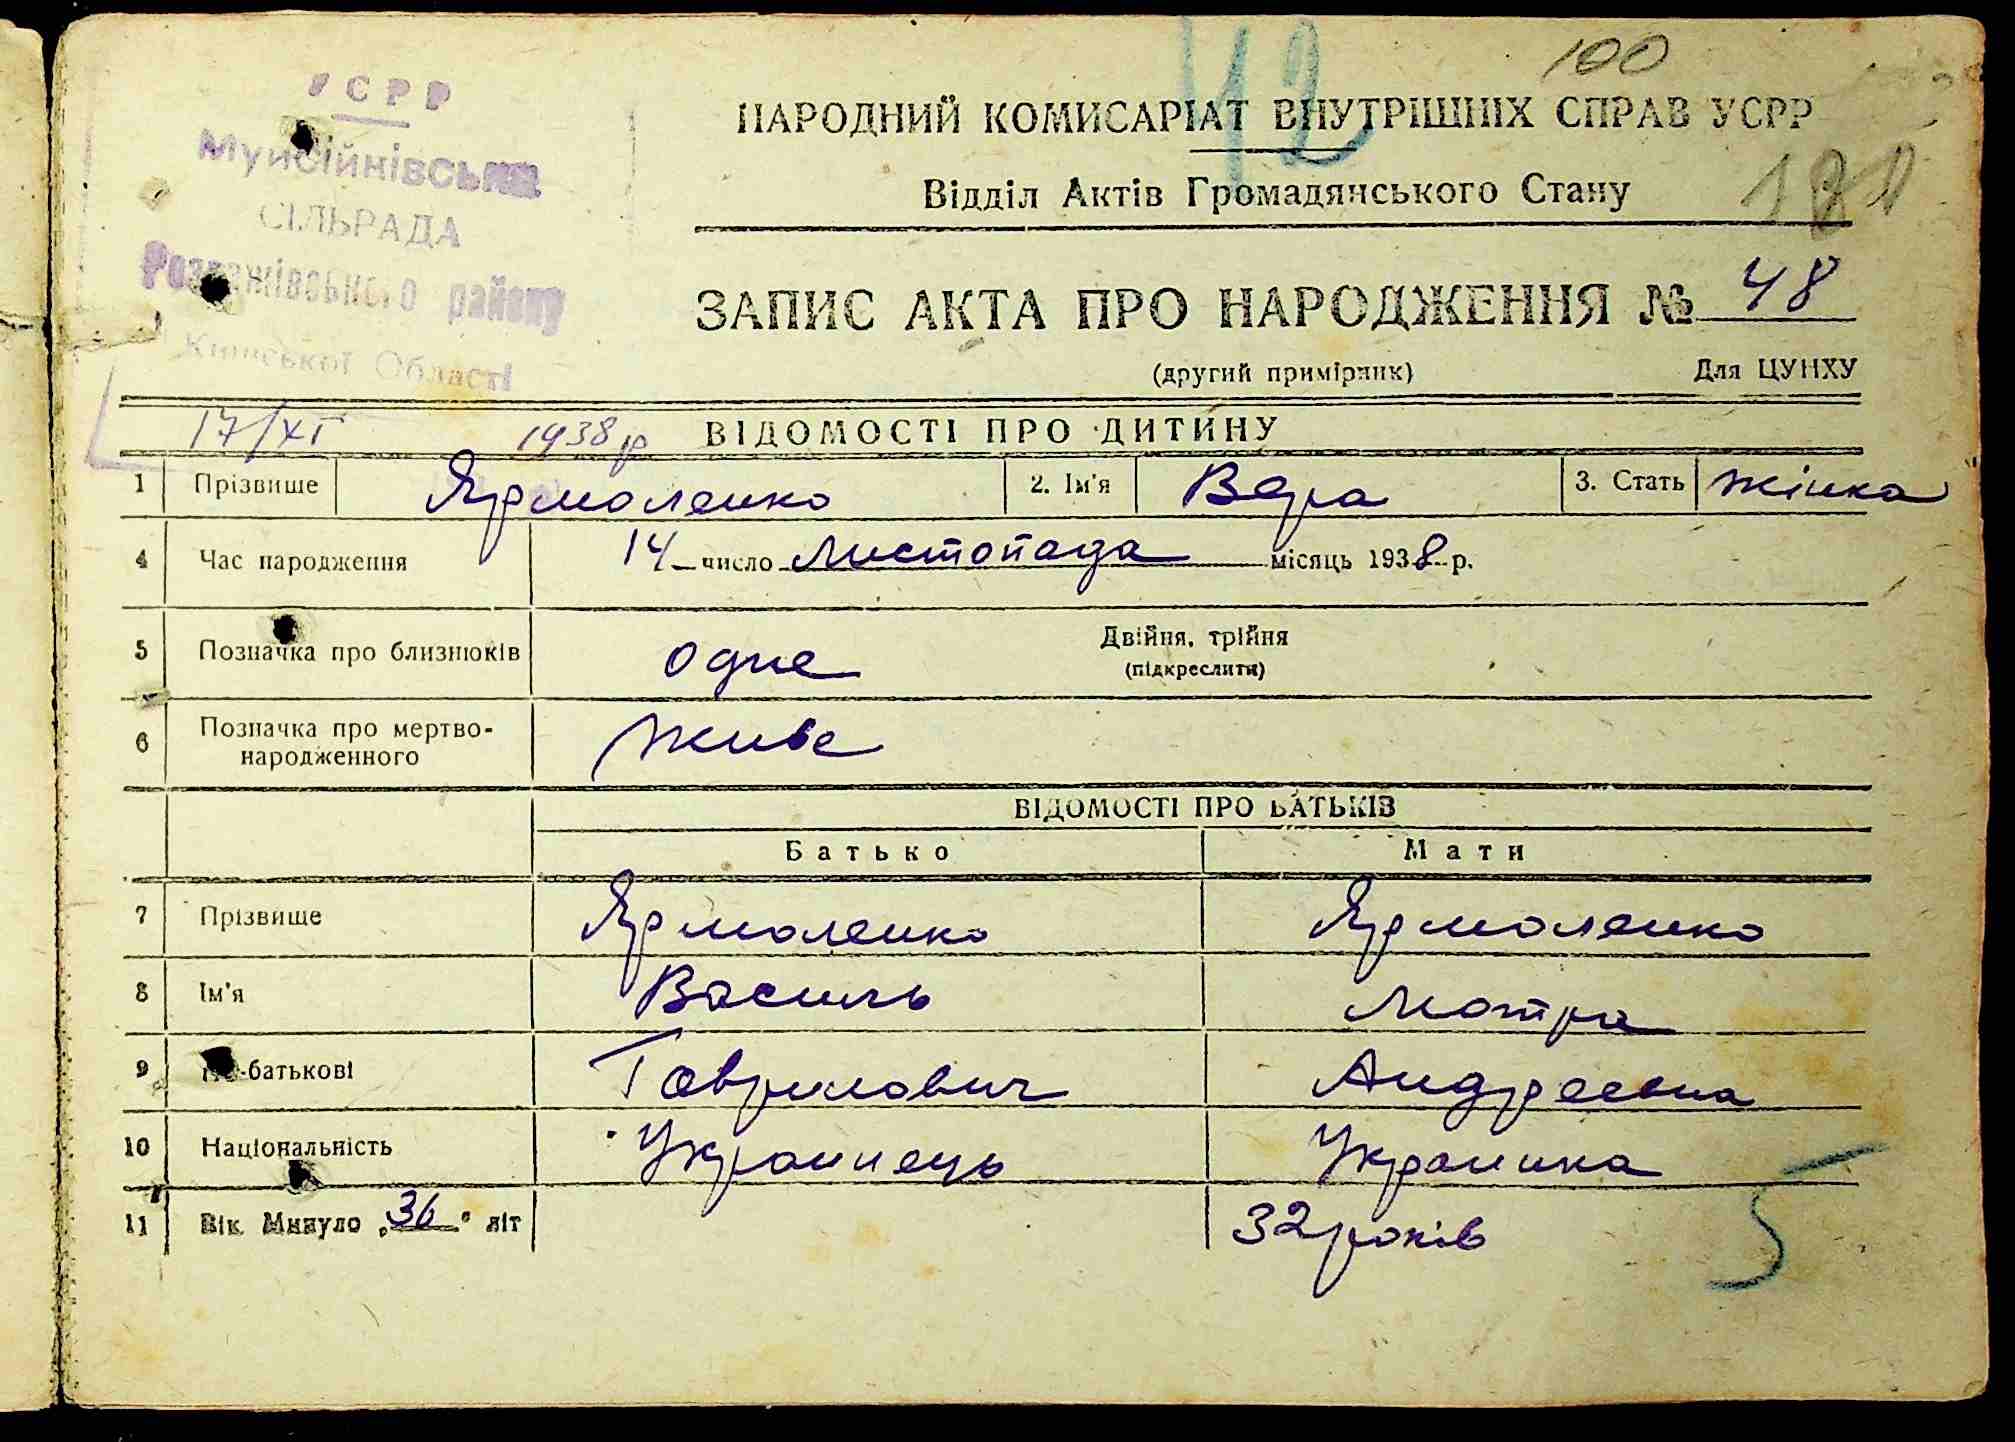 УСРР
Муйсійнівська
СІЛЬРАДА
Розважівського району
Київської Області
17/XI 1938 р
42
100
НАРОДНИЙ КОМИСАРІАТ ВНУТРІШНІХ СПРАВ УСРР
Відділ Актів Громадянського Стану
ЗАПИС АКТА ПРО НАРОДЖЕННЯ № 48
(другий примірник) Для ЦУНХУ
ВІДОМОСТІ ПРО ДИТИНУ
1 Прізвище Ярмоленко 2. Ім'я Вера 3. Стать жінка
4 Час народження 14 число листопада місяць 1938 р.
5 Позначка про близнюків одне Двійня, трійня
(підкреслити)
6 Позначка про мертво-
народженного живе
ВІДОМОСТІ ПРО БАТЬКІВ
Батько Мати
7 Прізвище Ярмоленко Ярмоленко
8 Ім'я Василь Мотра
9 По-батькові Гаврилович Андреевна
10 Національність Украинець Украинка
11 Вік. Минуло „36" літ 32 років
5